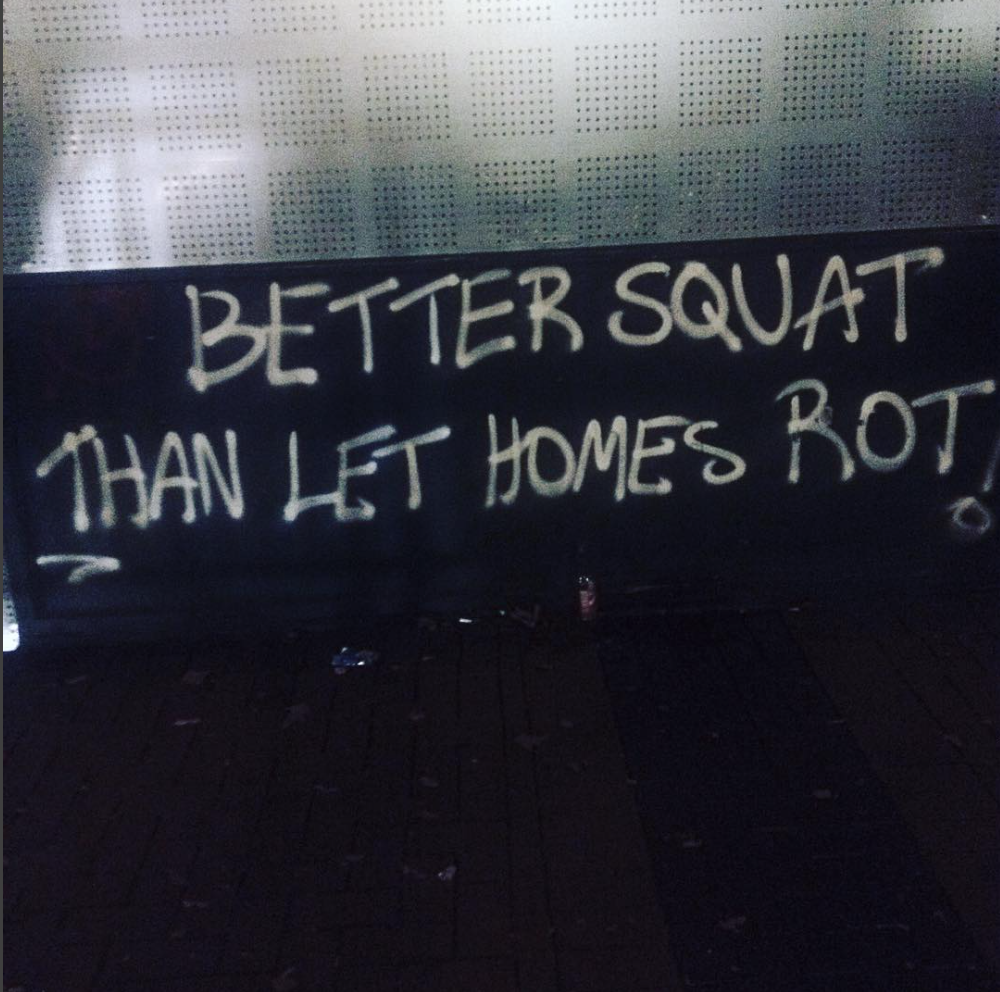 BETTER SQUAT
THAN LET HOMES ROT!